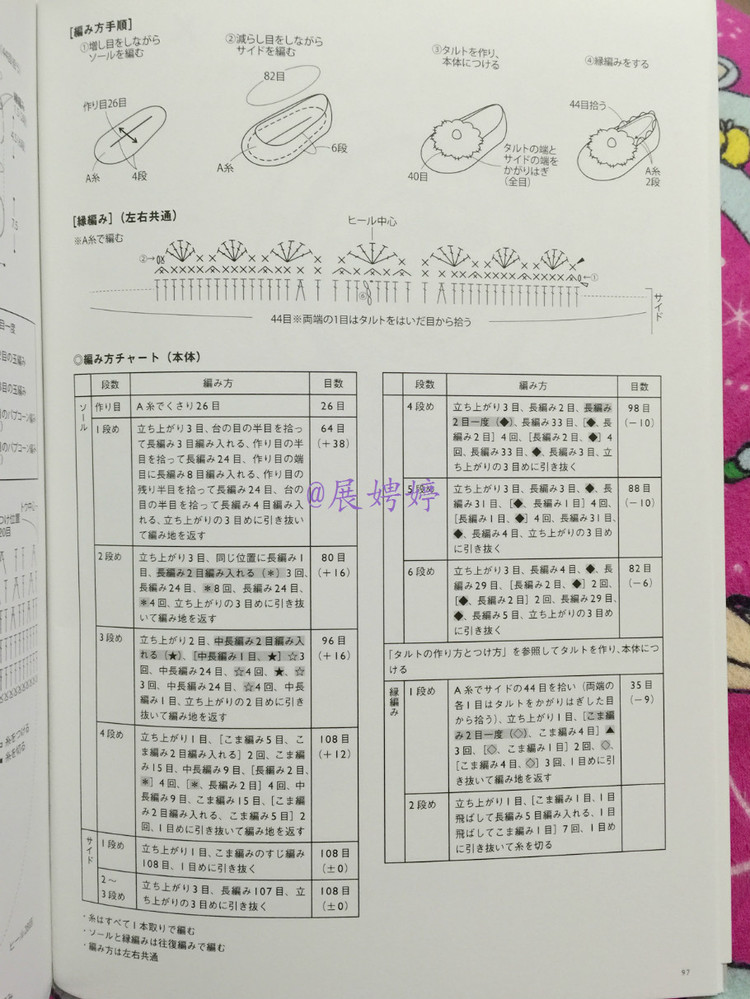 [編み方手順]
①増し目をしながら
ソールを編む
作り目26目
A糸
4段
②減らし目をしながら
サイドを編む
82目
A糸
6段
③タルトを作り、
本体につける
40目
タルトの端と
サイドの端を
かがりはぎ
(全目)
④縁編みをする
44目拾う
A糸
2段
[縁編み] (左右共通)
※A糸で編む
ヒール中心
②→
←①
⑥
サイド
44目※両端の1目はタルトをはいだ目から拾う
◎編み方チャート (本体)
段数 編み方 目数
ソール
作り目 A糸でくさり26目 26目
1段め 立ち上がり3目、台の目の半目を拾っ 64目
て長編み3目編み入れる、作り目の半 (+38)
目を拾って長編み24目、作り目の端
目に長編み8目編み入れる、作り目の
残り半目を拾って長編み24目、台の
目の半目を拾って長編み4目編み入
れる、立ち上がりの3目めに引き抜い
て編み地を返す
2段め 立ち上がり3目、同じ位置に長編み1 80目
目、長編み2目編み入れる (＊) 3回、 (+16)
長編み24目、＊8回、長編み24目、
＊4回、立ち上がりの3目めに引き抜
いて編み地を返す
3段め 立ち上がり2目、中長編み2目編み入 96目
れる (★)、[中長編み1目、★] ☆3 (+16)
回、中長編み24目、☆4回、★、☆
3回、中長編み24目、☆4回、中長編
み1目、立ち上がりの2目めに引き
抜いて編み地を返す
4段め 立ち上がり1目、[こま編み5目、こ 108目
ま編み2目編み入れる] 2回、こま編 (+12)
み15目、中長編み9目、[長編み2目、
＊] 4回、[＊、長編み2目] 4回、中
長編み9目、こま編み15目、[こま編
み2目編み入れる、こま編み5目] 2
回、1目めに引き抜いて編み地を返す
サイド
1段め 立ち上がり1目、こま編みのすじ編み 108目
108目、1目めに引き抜く (±0)
2〜
3段め 立ち上がり3目、長編み107目、立 108目
ち上がりの3目めに引き抜く (±0)
・糸はすべて1本取りで編む
・ソールと縁編みは往復編みで編む
・編み方は左右共通
段数 編み方 目数
4段め 立ち上がり3目、長編み2目、長編み 98目
2目一度 (◆)、長編み33目、[◆、長 (−10)
編み2目] 4回、[長編み2目、◆] 4
回、長編み33目、◆、長編み3目、立
ち上がりの3目めに引き抜く
5段め 立ち上がり3目、長編み3目、◆、長 88目
編み31目、[◆、長編み1目] 4回、 (−10)
[長編み1目、◆] 4回、長編み31目、
◆、長編み4目、立ち上がりの3目め
に引き抜く
6段め 立ち上がり3目、長編み4目、◆、長 82目
編み29目、[長編み2目、◆] 2回、 (−6)
[◆、長編み2目] 2回、長編み29目、
◆、長編み5目、立ち上がりの3目め
に引き抜く
「タルトの作り方とつけ方」を参照してタルトを作り、本体につ
ける
縁編み
1段め A糸でサイドの44目を拾い (両端の 35目
各1目はタルトをかがりはぎした目 (−9)
から拾う)、立ち上がり1目、[こま編
み2目一度 (◇)、こま編み4目] ▲
3回、[◇、こま編み1目] 2回、◇、
[こま編み4目、◇] 3回、1目めに引
き抜いて編み地を返す
2段め 立ち上がり1目、[こま編み1目、1目
飛ばして長編み5目編み入れる、1目
飛ばしてこま編み1目] 7回、1目め
に引き抜いて糸を切る
97
@展娉婷